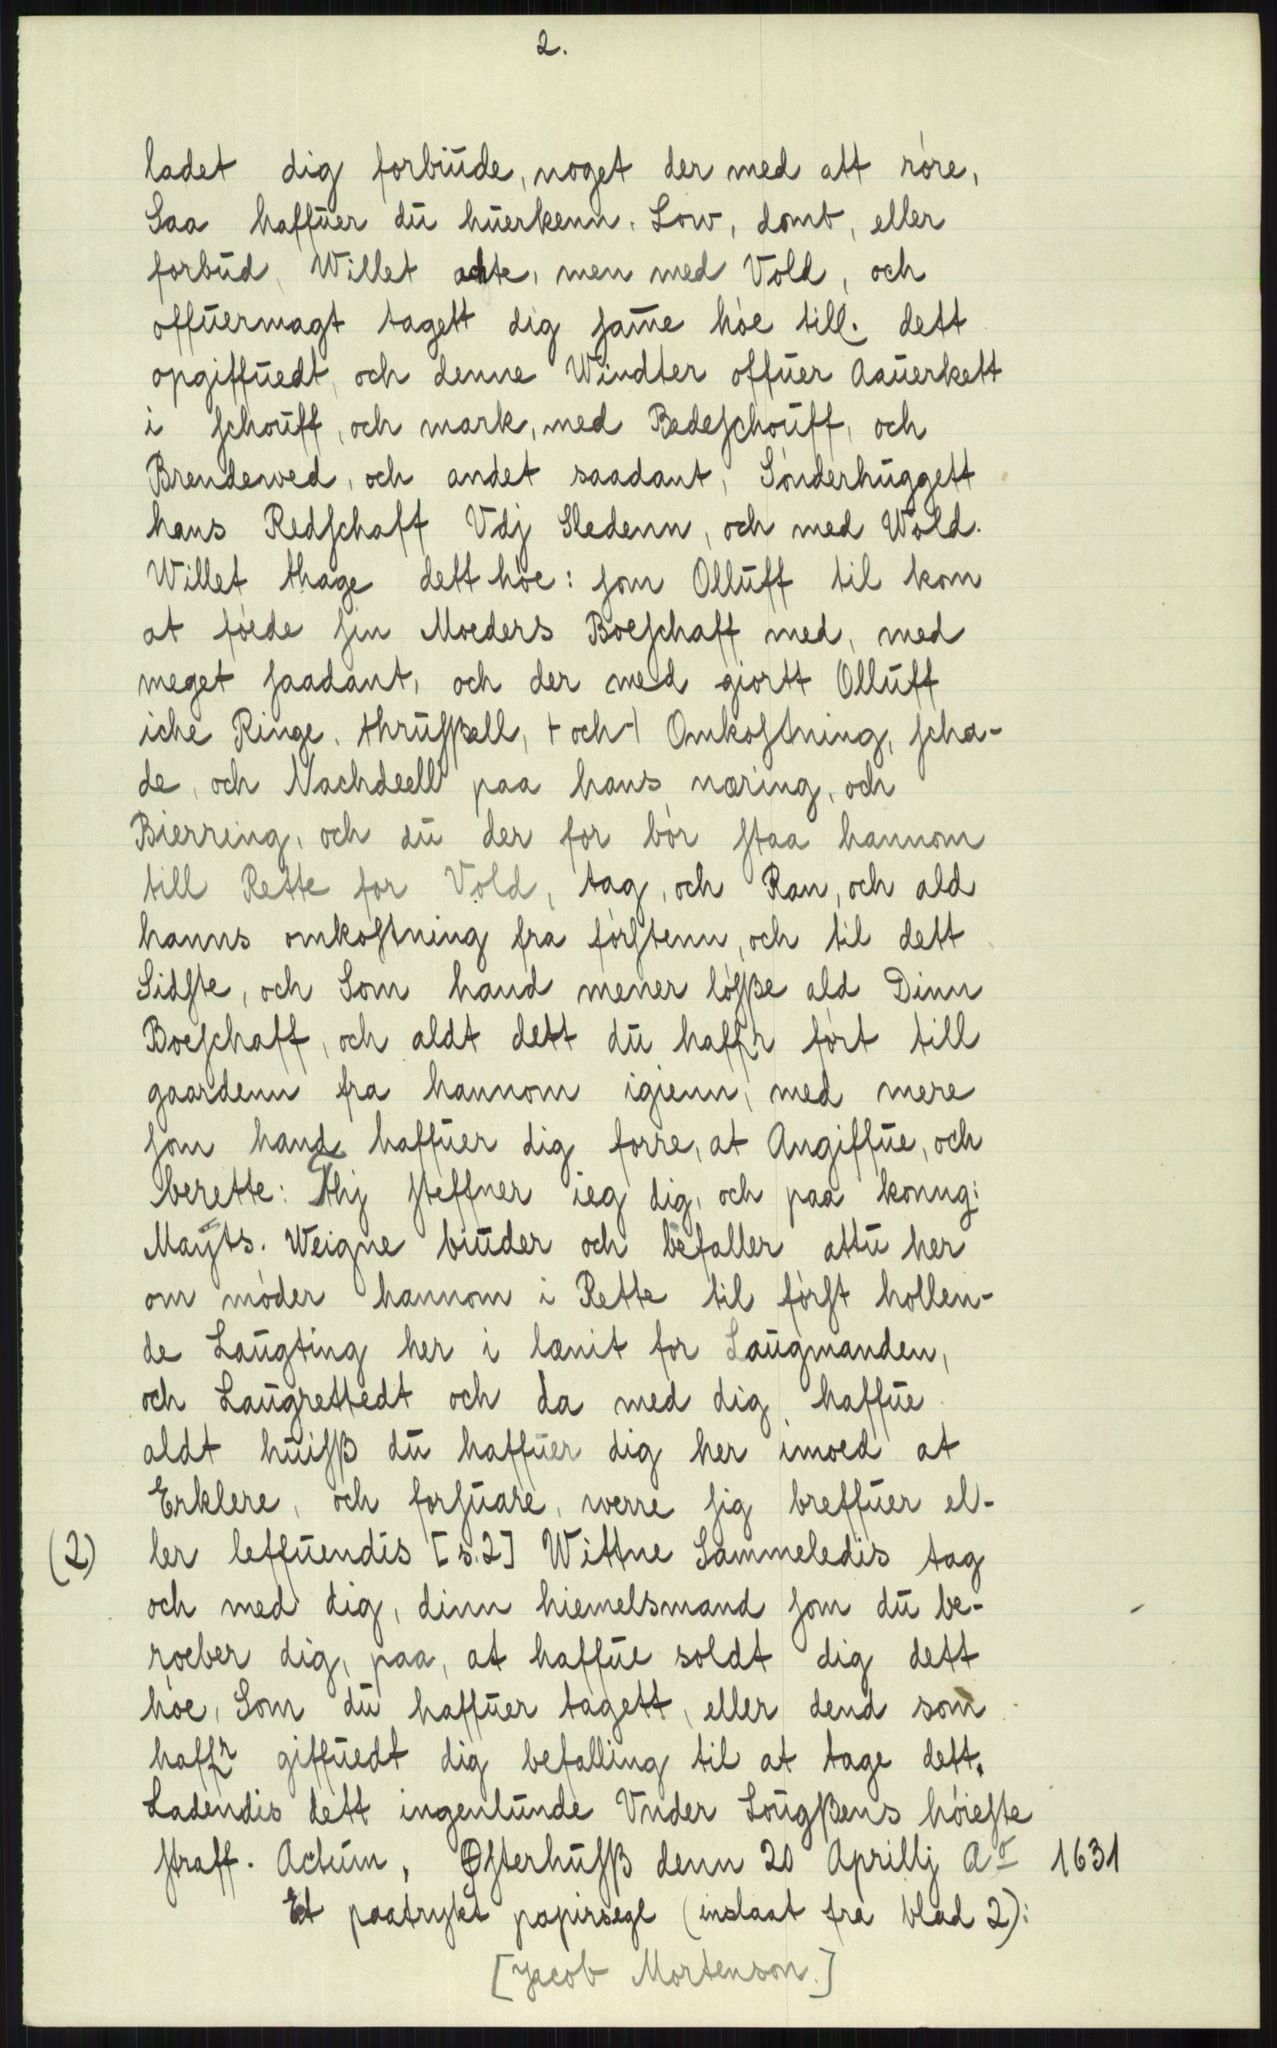 2.
ladet dig forbiude, noget der med att røre,
Saa haffuer du huerkenn. Low, domb, eller
forbud, Willet achte, men med Vold, och
offuermagt tagett dig same høe till. dett
opgiffuedt, och denne Windter offuer Aauerkett
i schouff, och mark, med Bedeschouff, och
Brendewed, och andet saadant, Sønderhuggett
hans Redschaff Vdj Sledenn, och med Wold.
Willet thage dett høe: som Olluff til kom
at føede sin Moeders Boeschaff med, med
meget saadant, och der med giortt Olluff
iche Ringe. thrusßell, + och + Omkostning, scha-
de, och Nachdeell paa hans næring, och
Bierring, och du der for bør staa hannom
till Rette for Vold, tag, och Ran, och ald
hanns omkostning fra førstenn, och til dett
Sidste, och Som hand mener løsße ald Dinn
Boeschaff, och aldt dett du haffr ført till
gaardenn fra hannom igienn, med mere
som hand haffuer dig forre, at Angiffue, och
berette: Thj steffner ieg dig, och paa konng:
Maÿts. Weigne biuder och befaller attu her
om møder hannom i Rette til først hollen-
de Laugting her i lænit for Laugmanden,
och Laugrettedt och da med dig haffue
aldt huisß du haffuer dig her imoed at
Erklere, och forsuare, werre sig breffuer el-
(2) ler leffuendis [s. 2] Wittne Sammeledis tag
och med dig, dinn hiemelsmand som du be-
roeber dig, paa, at haffue soldt dig dett
høe, Som du haffuer tagett, eller dend som
haffr giffuedt dig befalling til at tage dett.
Ladendis dett ingenlunde Vnder Lougßens høieste
straff. Actum, Østerhusß denn 20 Aprillj Ao 1631
Et paatrykt papirsegl (inslaat fra blad 2):
[Jacob Mortenson.]